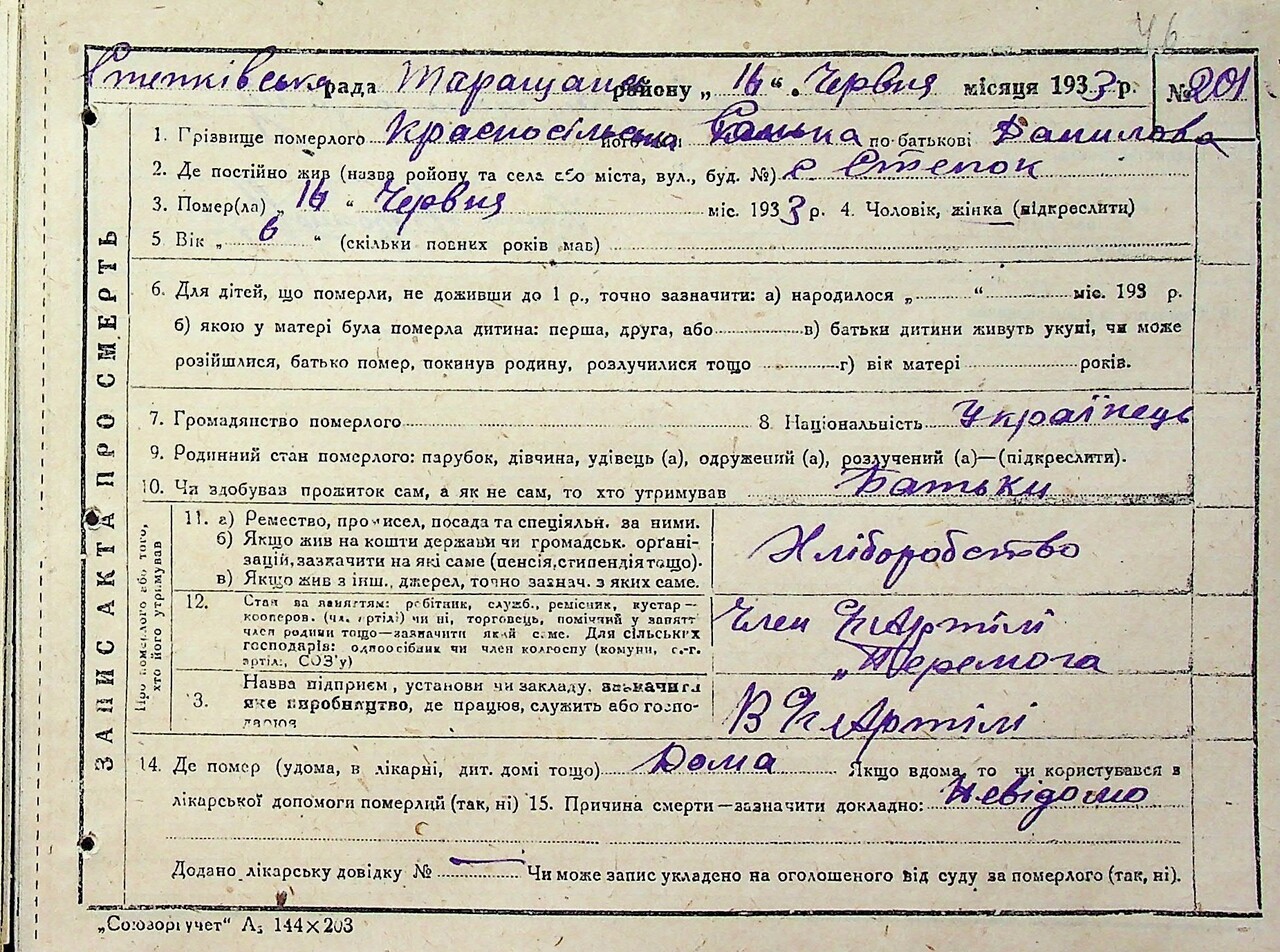 46
Степківська рада Таращанс району „ 16 “ Червня місяця 1933 р. № 201
1. Грізвище померлого Красносільська його ім'я Ганька по-батькові Данилова
2. Де постійно жив (назва району та села або міста, вул., буд. №) с Степок
3. Помер(ла) „ 16 “ Червня міс. 1933 р. 4. Чоловік, жінка (підкреслити)
5 Вік „ 6 “ (скільки повних років мав)
6. Для дітей, що померли, не доживши до 1 р., точно зазначити: а) народилося „ “ міс. 193 р.
б) якою у матері була померла дитина: перша, друга, або в) батьки дитини живуть укупі, чи може
розійшлися, батько помер, покинув родину, розлучилися тощо г) вік матері років.
7. Громадянство померлого 8. Національність Українець
9. Родинний стан померлого: парубок, дівчина, удівець (а), одружений (а), розлучений (а)—(підкреслити).
10. Чи здобував прожиток сам, а як не сам, то хто утримував Батьки
ЗАПИС АКТА ПРО СМЕРТЬ
Про померлого або того,
хто його утримував
11. а) Ремество, промисел, посада та спеціяльн. за ними.
б) Якщо жив на кошти держави чи громадськ. орґані-
зацій, зазначити на які саме (пенсія, стипендія тощо).
в) Якщо жив з інш., джерел, точно зазнач. з яких саме.
Хліборобство
12. Стан за заняттям: робітник, служб., ремісник, кустар—
кооперов. (чл. артілі) чи ні, торговець, помічний у занятт
член родини тощо—зазначити який саме. Для сільських
господарів: одноосібник чи член колгоспу (комуни, с.-г.
артілі, СОЗ'у)
Член с/г Артілі
„Перемога
3. Назва підприєм, установи чи закладу, зазначити
яке виробництво, де працює, служить або госпо-
дарює
В с/г Артілі
14. Де помер (удома, в лікарні, дит. домі тощо) Дома Якщо вдома, то чи користувався з
лікарської допомоги померлий (так, ні) 15. Причина смерти—зазначити докладно: Невідомо
Додано лікарську довідку № — Чи може запис укладено на оголошеного від суду за померлого (так, ні).
„Союзоргучет“ А₅ 144×203